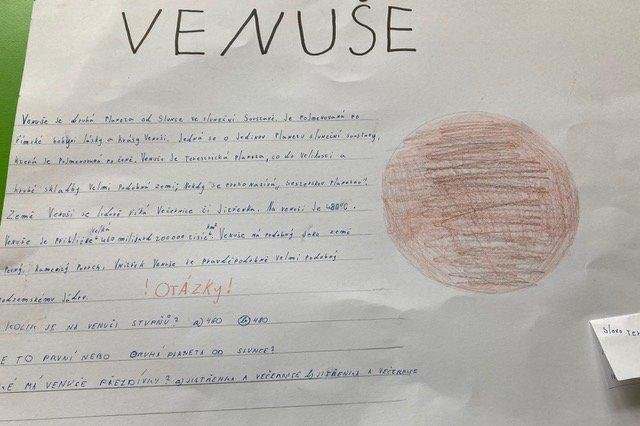 VENUŠE
Venuše je druhá planeta od slunce ve sluneční soustavě. Je pojmenovaná po
římské bohyni lásky a krásy Venuši. Jedná se o jedinou planetu sluneční soustavy,
která je pojmenovaná po ženě. Venuše je terestrická planeta, co do velikosti a
hrubé skladby velmi podobná zemi; Někdy se proto nazívá „sesterskou planetou".
Země Venuši se lidově říká Večernice či Jitřenka. Na venuši je 480°C.
Venuše je približně velká 460 miliard 200000 tisíc km². Venuše má podobný jako země
pevný, kamenný povrch. Vnitřek Venuše je pravděpodobně velmi podobný
podzemskému jádru.
! OTÁZKY !
KOLIK JE NA VENUŠI STUPŇŮ? a) 460 b) 480
E TO PRVNÍ NEBO DRUHÁ PLANETA OD SLUNCE?
KÉ MÁ VENUŠE PŘEZDÍVKY? a) JISTŘENKA A VEČERNICE b) JISTŘENKA A VEČERNICE
Slovo